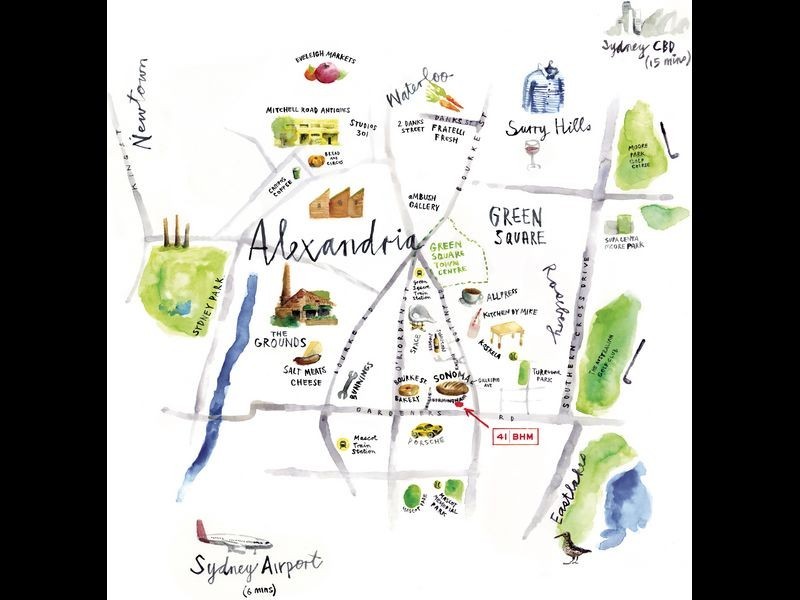 Sydney CBD
(15 mins)
EVELEIGH MARKETS
Newtown
KINGS ST
Waterloo
MITCHELL ROAD ANTIQUES
STUDIOS
301
2 DANKS
STREET
DANKS ST
FRATELLI
FRESH
BOURKE ST
Surry Hills
MOORE
PARK
GOLF COURSE
BREAD
AND
CIRCUS
CAMPOS
COFFEE
AMBUSH
GALLERY
GREEN
SQUARE
SUPA CENTA
MOORE PARK
Alexandria
GREEN
SQUARE
TOWN
CENTRE
Green
Square
Train
Station
SYDNEY PARK
THE
GROUNDS
SALT MEATS
CHEESE
ALLPRESS
KITCHEN BY MIKE
KOSKELA
SPACE
Rosebery
SOUTHERN CROSS DRIVE
THE AUSTRALIAN
GOLF CLUB
BOURKE R
O'RIORDAN S
BUNNINGS
BOURKE ST.
BAKERY
SONOMA
GILLESPIE
AVE
BIRMINGHAM
TURRUWUL
PARK
GARDENERS RD
41 | BHM
Mascot
Train
Station
PORSCHE
MASCOT PARK
MASCOT
MEMORIAL
PARK
Eastlakes
Sydney Airport
(6 mins)